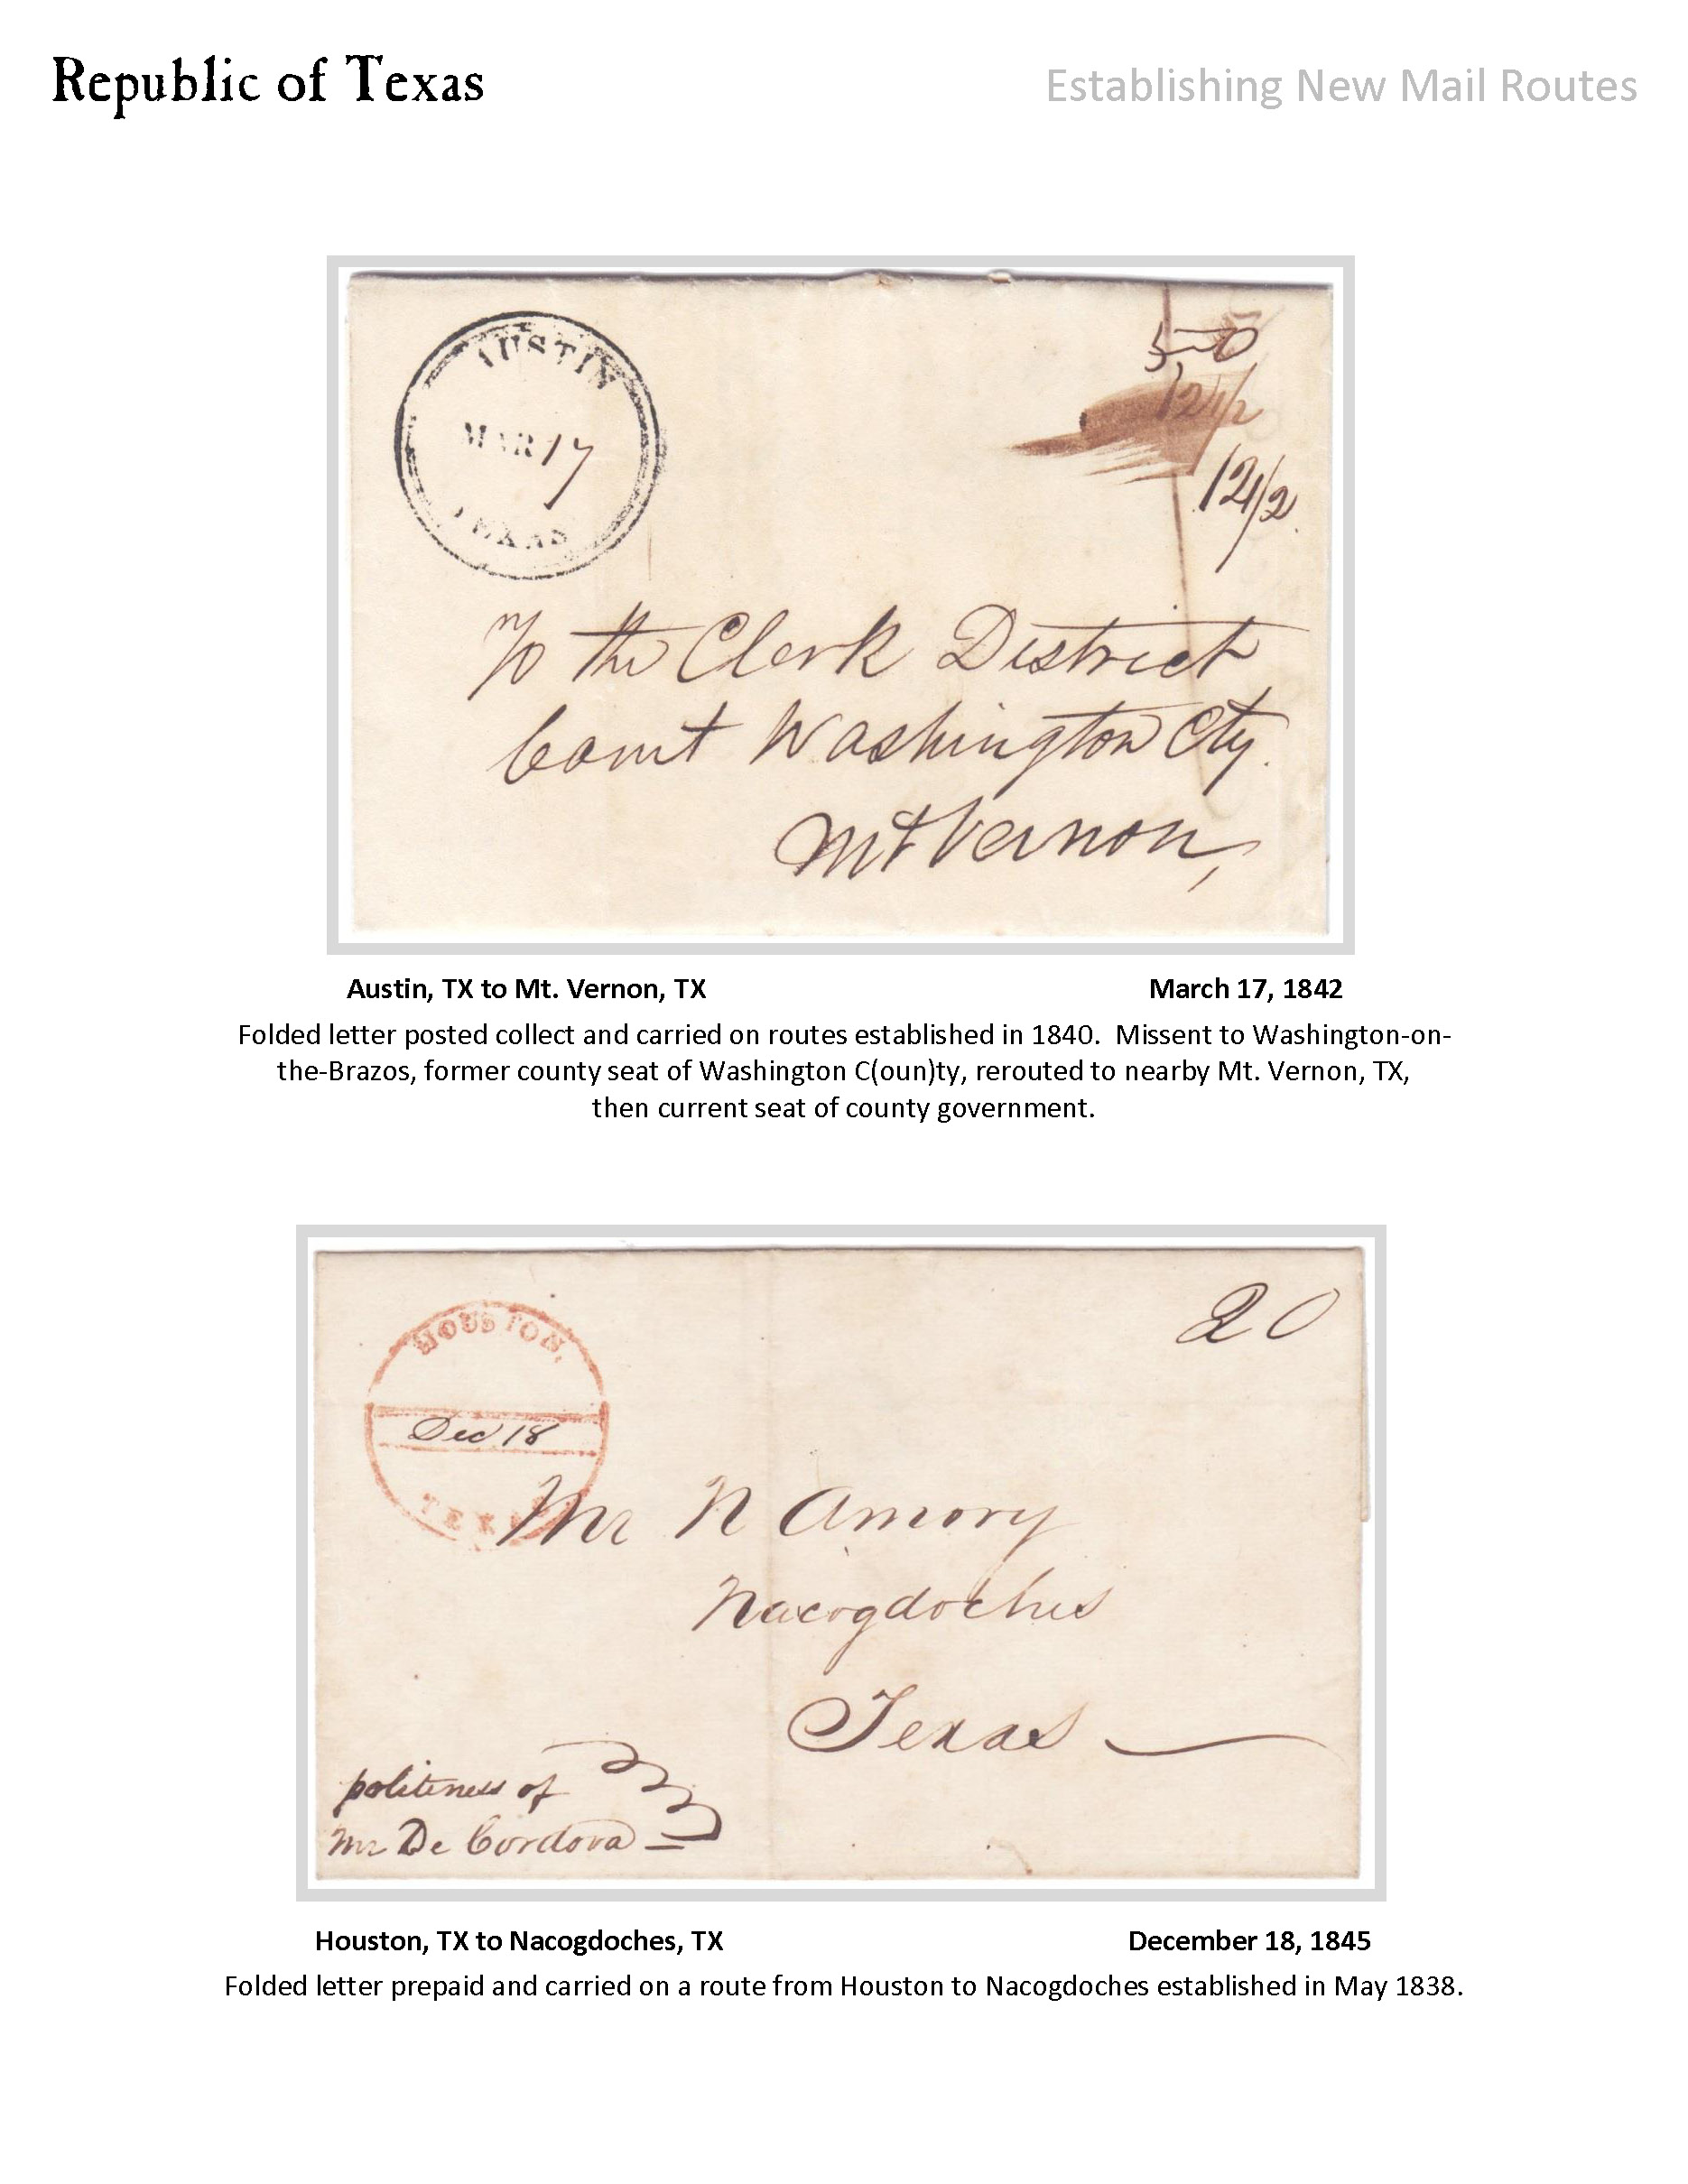 Republic of Texas
Establishing New Mail Routes
AUSTIN
MAR 17
TEXAS
50
12 1/2
12 1/2
To the Clerk District
Court Washington Cty.
Mt Vernon,
Austin, TX to Mt. Vernon, TX
March 17, 1842
Folded letter posted collect and carried on routes established in 1840. Missent to Washington-on-
the-Brazos, former county seat of Washington C(oun)ty, rerouted to nearby Mt. Vernon, TX,
then current seat of county government.
20
HOUSTON,
Dec 18
TEXAS
Mr N Amory
Nacogdoches
Texas
politeness of
Mr De Cordova
Houston, TX to Nacogdoches, TX
December 18, 1845
Folded letter prepaid and carried on a route from Houston to Nacogdoches established in May 1838.